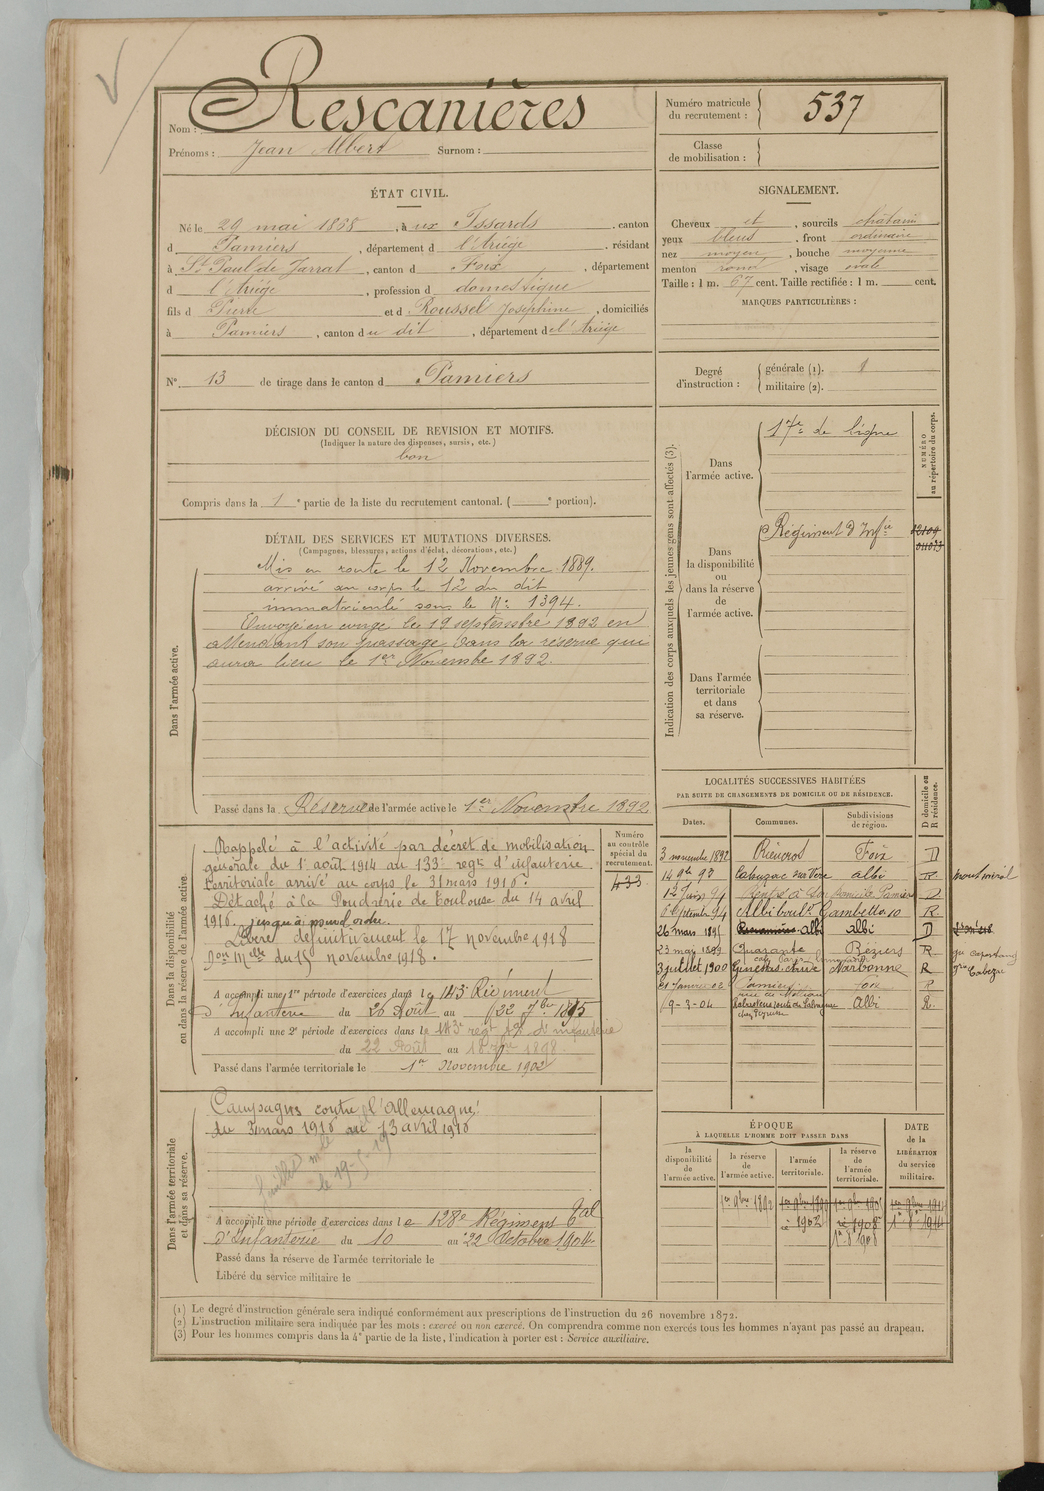 Nom : Rescanières
Prénoms : Jean Albert Surnom :
Numéro matricule du recrutement : 537
Classe de mobilisation :
ÉTAT CIVIL.
Né le 29 mai 1868, à ux Issards, canton
d Pamiers, département d l'Ariège, résidant
à St Paul de Jarrat, canton d Foix, département
d l'Ariège, profession d domestique
fils d Pierre et d Roussel Joséphine, domiciliés
à Pamiers, canton du dit, département de l'Ariège
SIGNALEMENT.
Cheveux et, sourcils châtain
yeux bleus, front ordinaire
nez moyen, bouche moyenne
menton rond, visage ovale
Taille : 1 m. 67 cent. Taille rectifiée : 1 m. cent.
MARQUES PARTICULIÈRES :
N° 13 de tirage dans le canton d Pamiers
Degré d'instruction : générale (1). 1
militaire (2).
DÉCISION DU CONSEIL DE REVISION ET MOTIFS.
(Indiquer la nature des dispenses, sursis, etc.)
bon
Compris dans la 1e partie de la liste du recrutement cantonal. ( e portion).
DÉTAIL DES SERVICES ET MUTATIONS DIVERSES.
(Campagnes, blessures, actions d'éclat, décorations, etc.)
Dans l'armée active.
Mis en route le 12 Novembre 1889.
arrivé au corps le 12 du dit
immatriculé sous le N° 1394.
Envoyé en congé le 19 septembre 1892 en
attendant son passage dans la réserve qui
aura lieu le 1er Novembre 1892.
Passé dans la Réserve de l'armée active le 1er Novembre 1892
Indication des corps auxquels les jeunes gens sont affectés (3).
NUMÉRO au répertoire du corps.
Dans l'armée active.
17e de ligne
Dans la disponibilité ou dans la réserve de l'armée active.
Régiment d'Infie
Dans l'armée territoriale et dans sa réserve.
LOCALITÉS SUCCESSIVES HABITÉES
PAR SUITE DE CHANGEMENTS DE DOMICILE OU DE RÉSIDENCE.
Dates. Communes. Subdivisions de région. D domicile ou R résidence.
3 novembre 1892 Rieucros Foix D
14 9bre 93 Cahuzac sur Vère Albi R
Pamiers D
Albi boulvd Gambetta 10 R
26 mars 1895 Albi Albi D
23 mai 1899 Quarante Béziers R
3 juillet 1900 Ginestas Narbonne R
21 Janvier 02 Pamiers Foix R
19-3-04 Albi R
Dans la disponibilité ou dans la réserve de l'armée active.
Numéro au contrôle spécial du recrutement.
433
Rappelé à l'activité par décret de mobilisation
générale du 1er août 1914 au 133e regt d'infanterie
territoriale arrivé au corps le 31 mars 1916.
Détaché à la Poudrerie de Toulouse du 14 avril
1916. jusqu'à nouvel ordre.
Libéré définitivement le 17 novembre 1918
du 15 novembre 1918.
A accompli une 1re période d'exercices dans le 143e Régiment
d'Infanterie du 26 Août au 22 7bre 1895
A accompli une 2e période d'exercices dans le 143e regt d'infanterie
du 22 Août au 18 7bre 1898.
Passé dans l'armée territoriale le 1er Novembre 1902
Dans l'armée territoriale et dans sa réserve.
Campagne contre l'Allemagne
du 31 mars 1916 au 13 avril 1916
le 19-5-19
A accompli une période d'exercices dans le 128e Régiment Tal
d'Infanterie du 10 au 22 Octobre 1904
Passé dans la réserve de l'armée territoriale le
Libéré du service militaire le
ÉPOQUE
À LAQUELLE L'HOMME DOIT PASSER DANS
la disponibilité de l'armée active. la réserve de l'armée active. l'armée territoriale. la réserve de l'armée territoriale.
DATE de la LIBÉRATION du service militaire.
1er 9bre 1892
1902
1908
(1) Le degré d'instruction générale sera indiqué conformément aux prescriptions de l'instruction du 26 novembre 1872.
(2) L'instruction militaire sera indiquée par les mots : exercé ou non exercé. On comprendra comme non exercés tous les hommes n'ayant pas passé au drapeau.
(3) Pour les hommes compris dans la 4e partie de la liste, l'indication à porter est : Service auxiliaire.